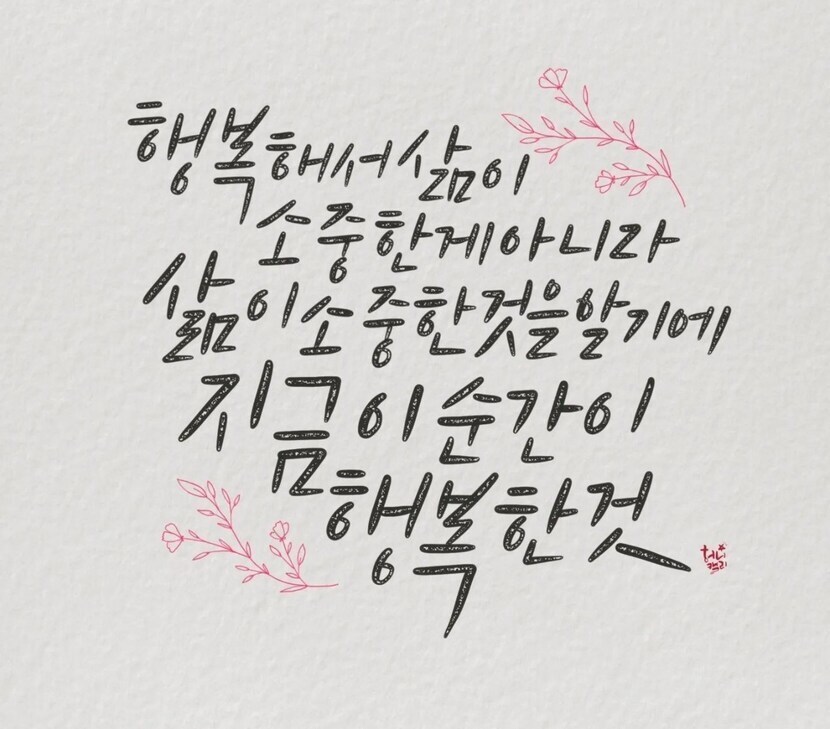 행복해서 삶이
소중한게 아니라
삶이 소중한것을 알기에
지금 이 순간이
행복한 것
허니
캘리